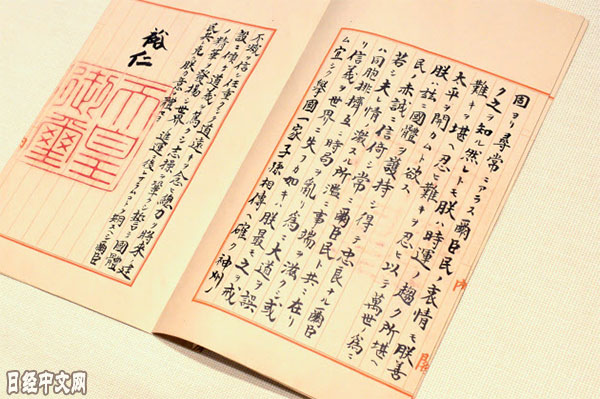 固ヨリ尋常ニアラス爾臣民ノ衷情モ朕善
ク之ヲ知ル然レトモ朕ハ時運ノ趨ク所堪ヘ
難キヲ堪ヘ忍ヒ難キヲ忍ヒ以テ萬世ノ爲ニ
太平ヲ開カムト欲ス
朕ハ茲ニ國體ヲ護持シ得テ忠良ナル爾臣
民ノ赤誠ニ信倚シ常ニ爾臣民ト共ニ在リ
若シ夫レ情ノ激スル所濫ニ事端ヲ滋クシ或
ハ同胞排擠互ニ時局ヲ亂リ爲ニ大道ヲ誤
リ信義ヲ世界ニ失フカ如キハ朕最モ之ヲ戒
ム宜シク擧國一家子孫相傳ヘ確ク神州ノ
不滅ヲ信シ任重クシテ道遠キヲ念ヒ總力ヲ將來ノ建
設ニ傾ケ道義ヲ篤クシ志操ヲ鞏クシ誓テ國體
ノ精華ヲ發揚シ世界ノ進運ニ後レサラムコトヲ期スヘシ爾臣
民其レ克ク朕カ意ヲ體セヨ
裕仁
天皇
御璽
日经中文网